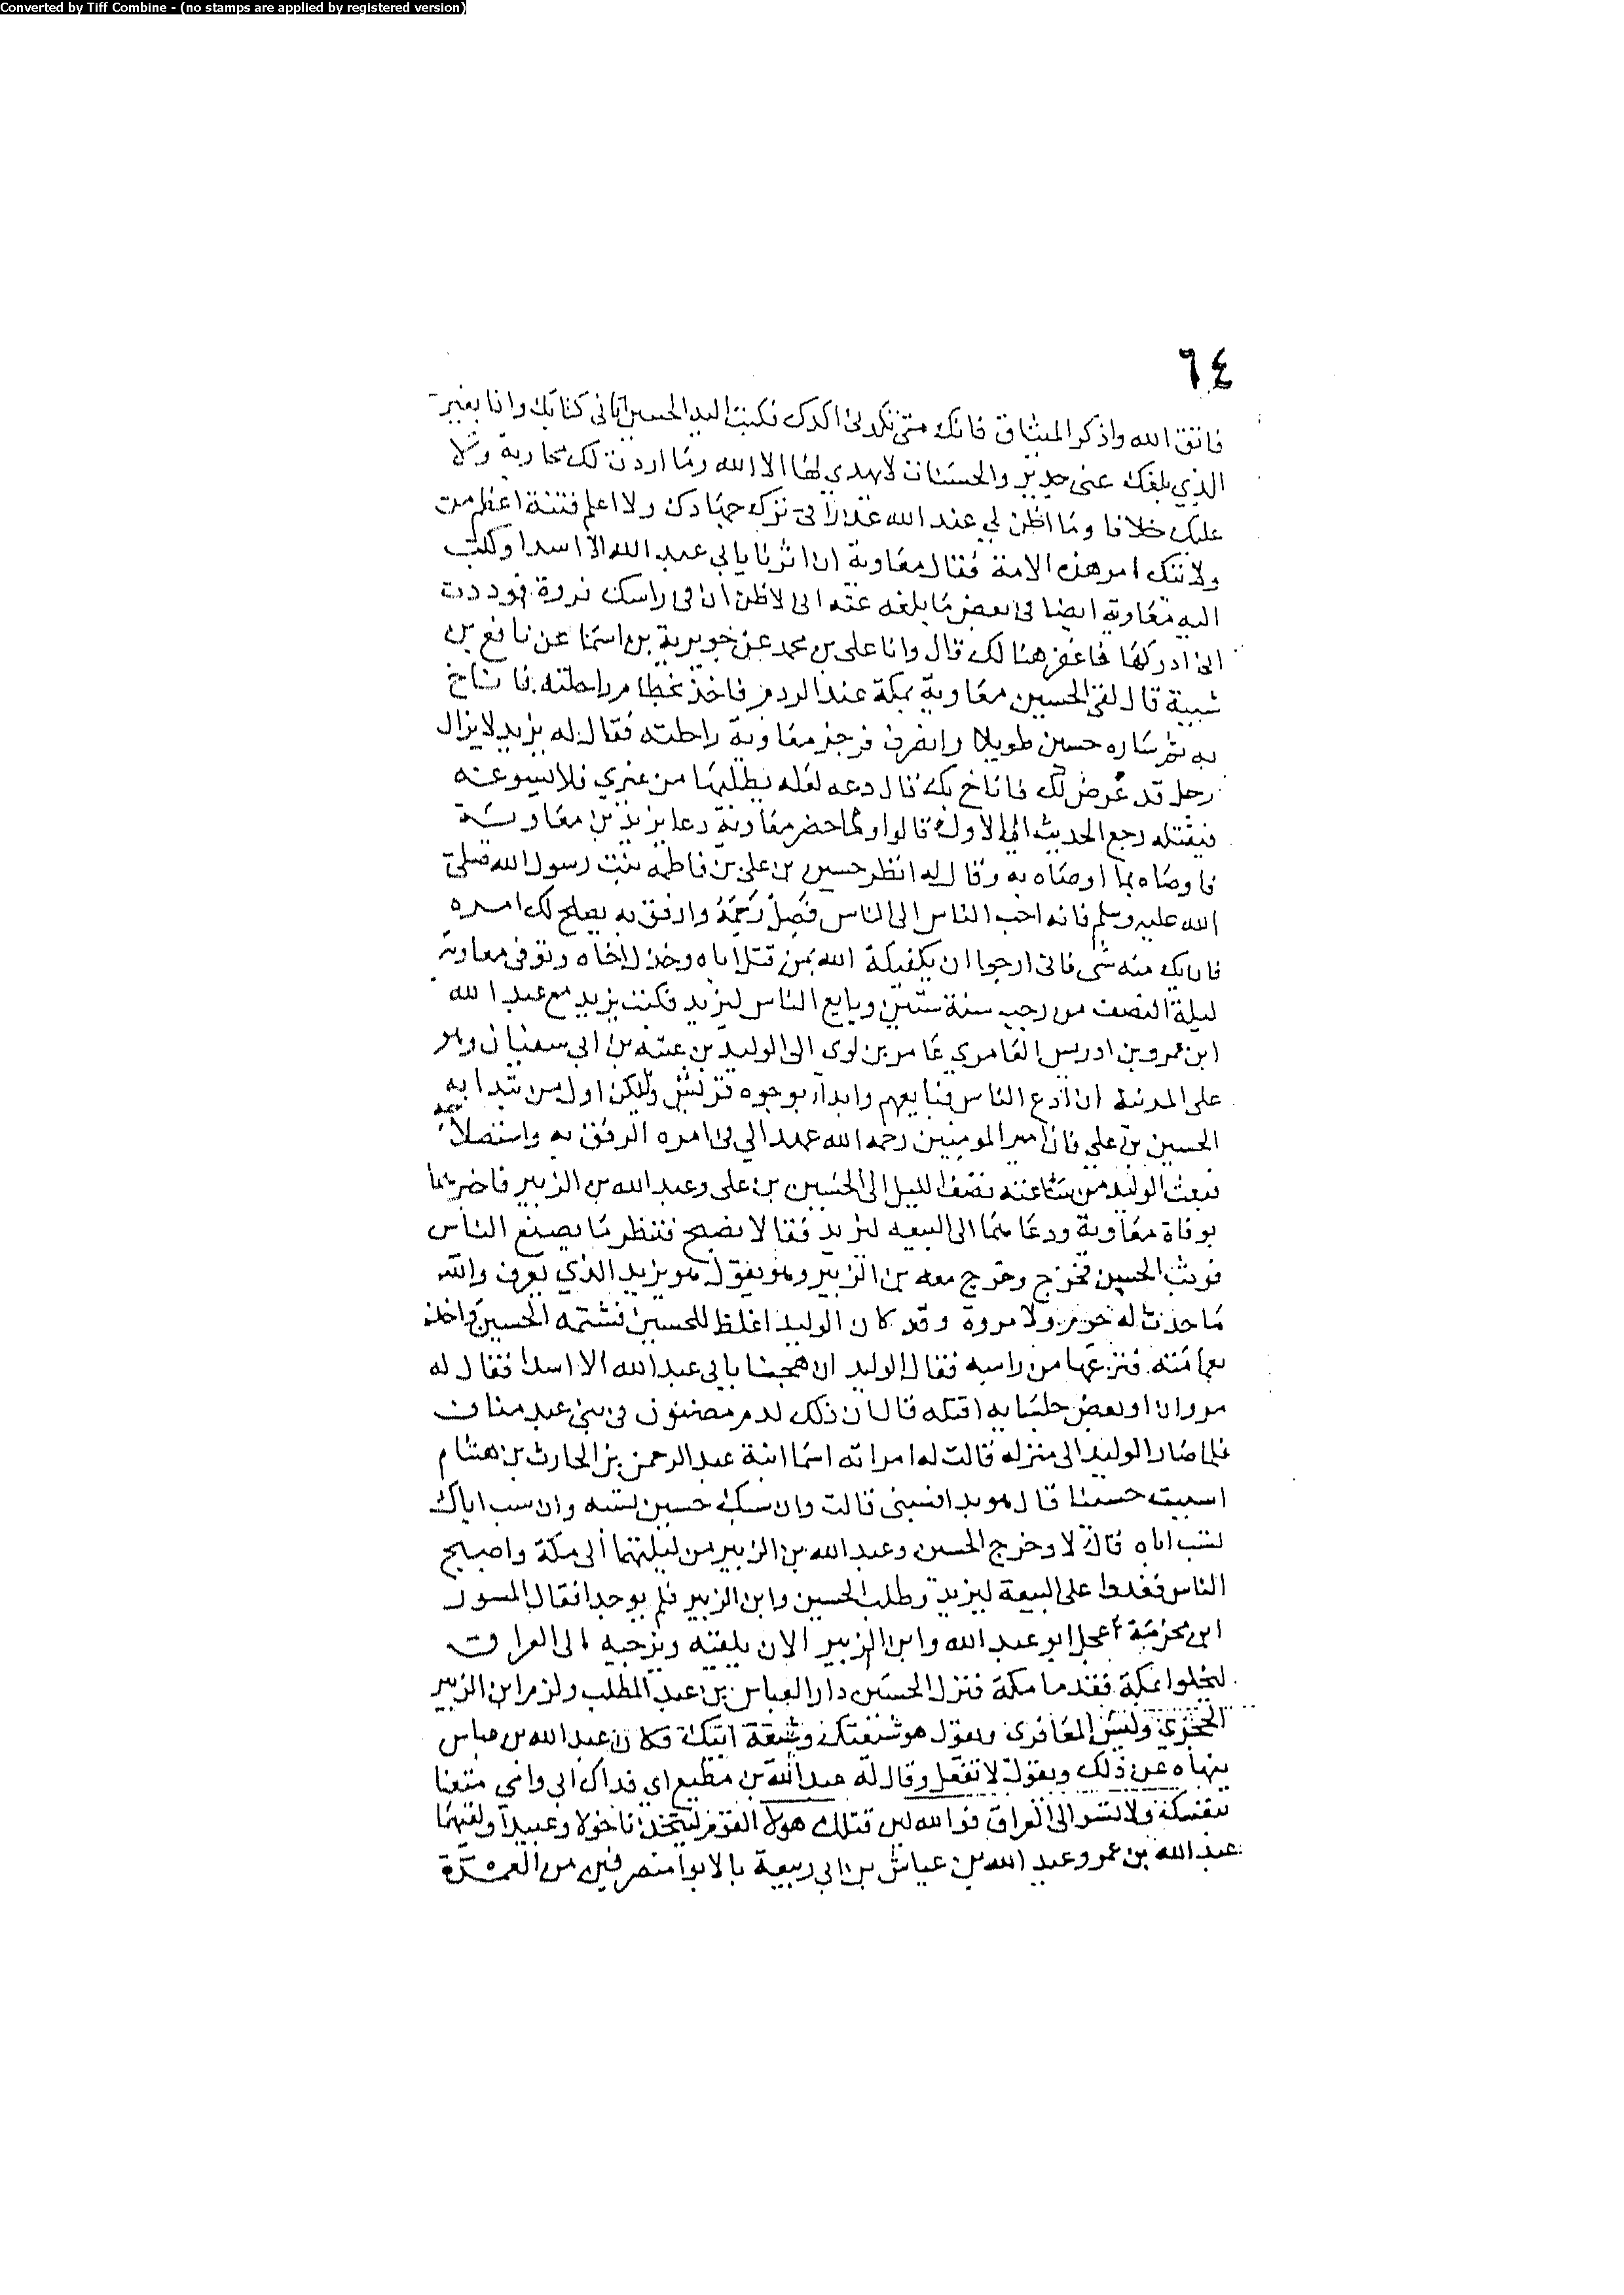 Converted by Tiff Combine - (no stamps are applied by registered version)
٦٤
فاتق الله واذكر الميثاق فانك متى تكدني اكدك فكتب اليه الحسين اتاني كتابك وانا بغير
الذي بلغك عني جدير والحسنات لا يهدي لها الا الله وما اردت لك محاربة ولا
عليك خلافا وما اظن لي عند الله عذرا في ترك جهادك ولا اعلم فتنة اعظم من
ولايتك امر هذه الامة فقال معاوية ان اثرنا بابي عبد الله الا اسدا وكتب
اليه معاوية ايضا في بعض ما بلغه عنه اني لاظن ان في راسك نزوة فوددت
اني ادركها فاغفرها لك قال وانا علي بن محمد عن جويرية بن اسما عن نافع بن
شيبة قال لقي الحسين معاوية بمكة عند الردم فاخذ بخطام راحلته فاناخ
به ثم ساره حسين طويلا وانصرف فزجر معاوية راحلته فقال له يزيد لا يزال
رجل قد عرض لك فاناخ بك قال دعه لعله يطلبها من غيري فلا يسوغه
فيقتله رجع الحديث الى الاول قالوا ولما حضر معاوية دعا يزيد بن معاوية
فاوصاه بما اوصاه به وقال له انظر حسين بن علي بن فاطمة بنت رسول الله صلى
الله عليه وسلم فانه احب الناس الى الناس فصل رحمه وارفق به يصلح لك امره
فان يك منه شي فاني ارجوا ان يكفيكه الله بمن قتل اباه وخذل اخاه وتوفي معاوية
ليلة النصف من رجب سنة ستين وبايع الناس ليزيد فكتب يزيد مع عبد الله
ابن عمرو بن ادريس العامري عامر بن لوي الى الوليد بن عتبه بن ابي سفيان وهو
على المدينة ان ادع الناس فبايعهم وابدا بوجوه قريش وليكن اول من تبدا به
الحسين بن علي فان امير المومنين رحمه الله عهد الي في امره الرفق به واستصلاحه
فبعث الوليد من ساعته نصف الليل الى الحسين بن علي وعبد الله بن الزبير فاخبرهما
بوفاة معاوية ودعاهما الى البيعه ليزيد فقالا نصبح فننظر ما يصنع الناس
فوثب الحسين فخرج وخرج معه بن الزبير وهو يقول هو يزيد الذي تعرف والله
ما حدث له حزم ولا مروة وقد كان الوليد اغلظ للحسين فشتمه الحسين واخذ
بعمامته فنزعها من راسه فقال الوليد ان هجنا بابي عبد الله الا اسدا فقال له
مروان او بعض جلسايه اقتله قال ان ذلك لدم مضنون في بني عبد مناف
فلما صار الوليد الى منزله قالت له امراته اسما ابنة عبد الرحمن بن الحارث بن هشام
اسببت حسينا قال هو بدا فسبني قالت وان سبك حسين تسبه وان سب اباك
تسب اباه قال لا وخرج الحسين وعبد الله بن الزبير من ليلتهما الى مكة واصبح
الناس فغدوا على البيعة ليزيد وطلب الحسين وابن الزبير فلم يوجدا فقال المسور
ابن مخرمة اعجل ابو عبد الله وابن الزبير الان يلفته ويزجيه الى العراق
ليخلوا بمكة فقدما مكة فنزل الحسين دار العباس بن عبد المطلب ولزم ابن الزبير
الحجر ولبس المعافري ويقول هو شيعتك وشيعة ابيك فكان عبد الله بن عباس
ينهاه عن ذلك ويقول لا تفعل وقال له عبد الله بن مطيع اي فداك ابي وامي متعنا
بنفسك ولا تسر الى العراق فوالله لين قتلك هولا القوم ليتخذنا خولا وعبيدا ولقيهما
عبد الله بن عمر وعبد الله بن عياش بن ابي ربيعة بالابوا منصرفين من العمرة